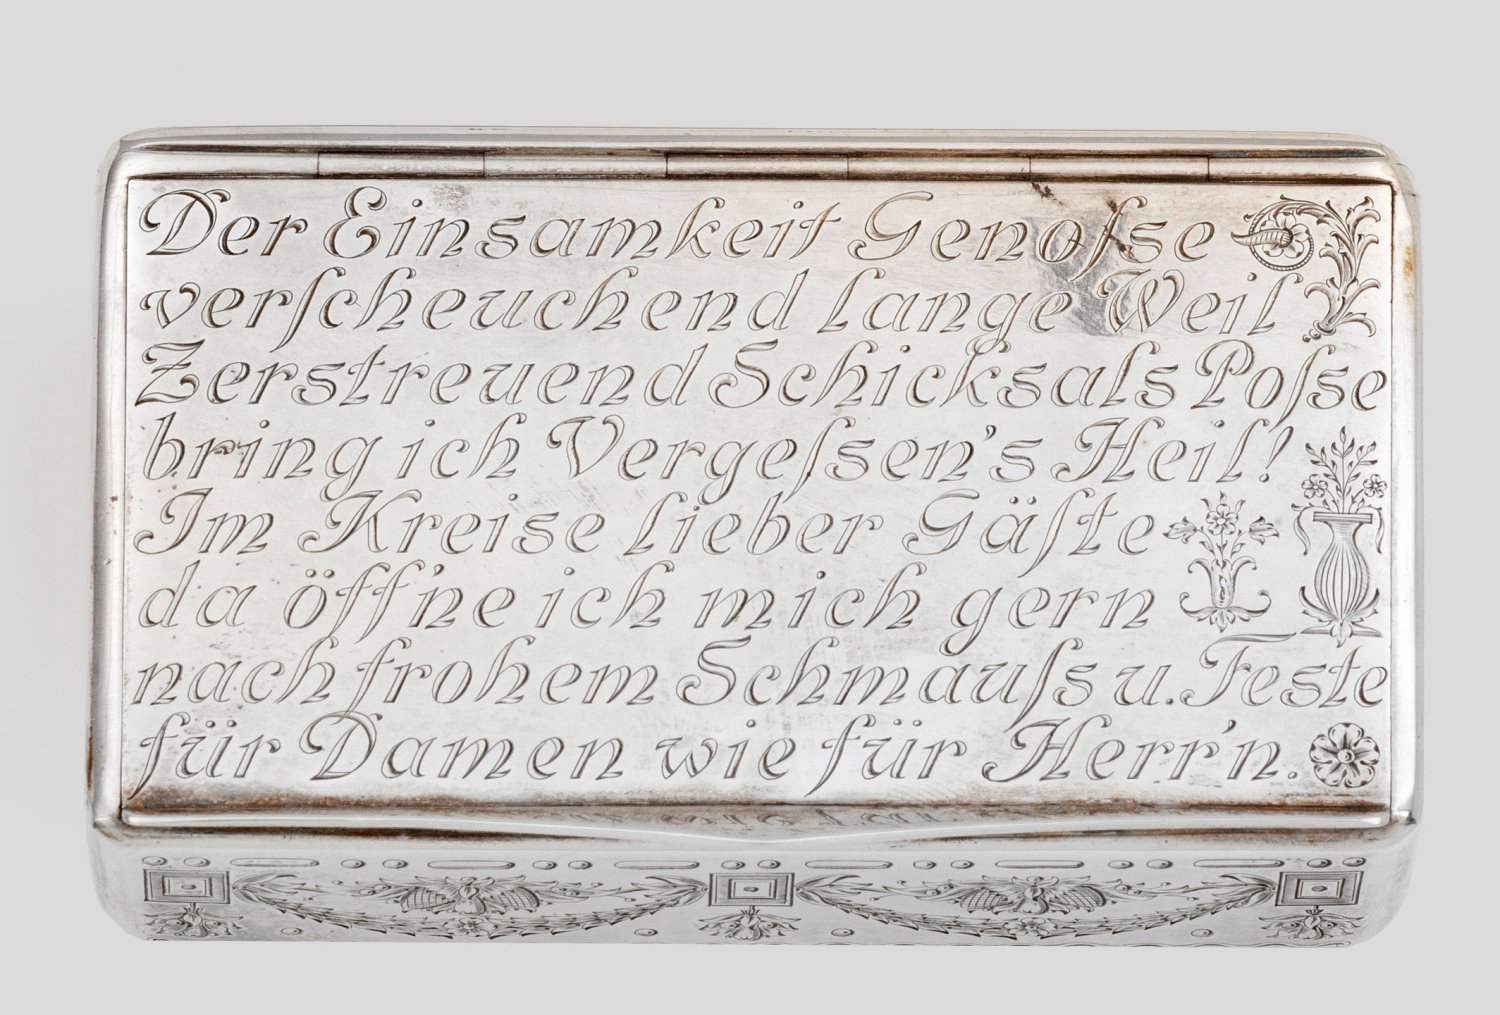 Der Einsamkeit Genoſse
verſcheuchend lange Weil
Zerstreuend Schicksals Poſse
bring ich Vergeſsen's Heil!
Im Kreise lieber Gäſte
da öff'ne ich mich gern
nach frohem Schmauſs u. Feste
für Damen wie für Herr'n.